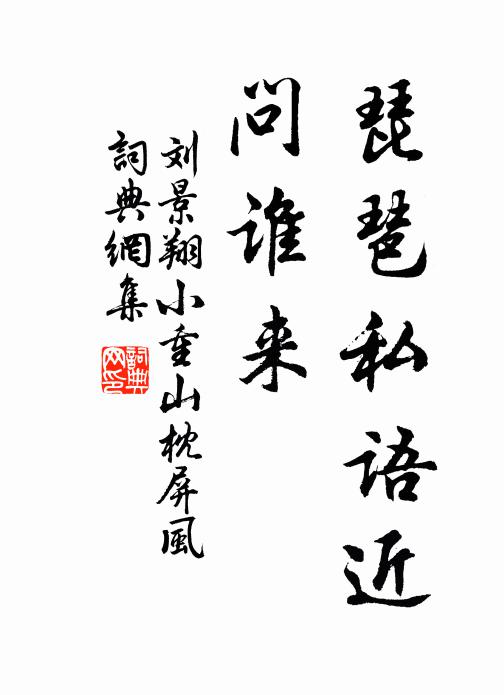 琵琶私语近
问谁来
刘景翔小重山枕屏風
詞典網集
詞典网印